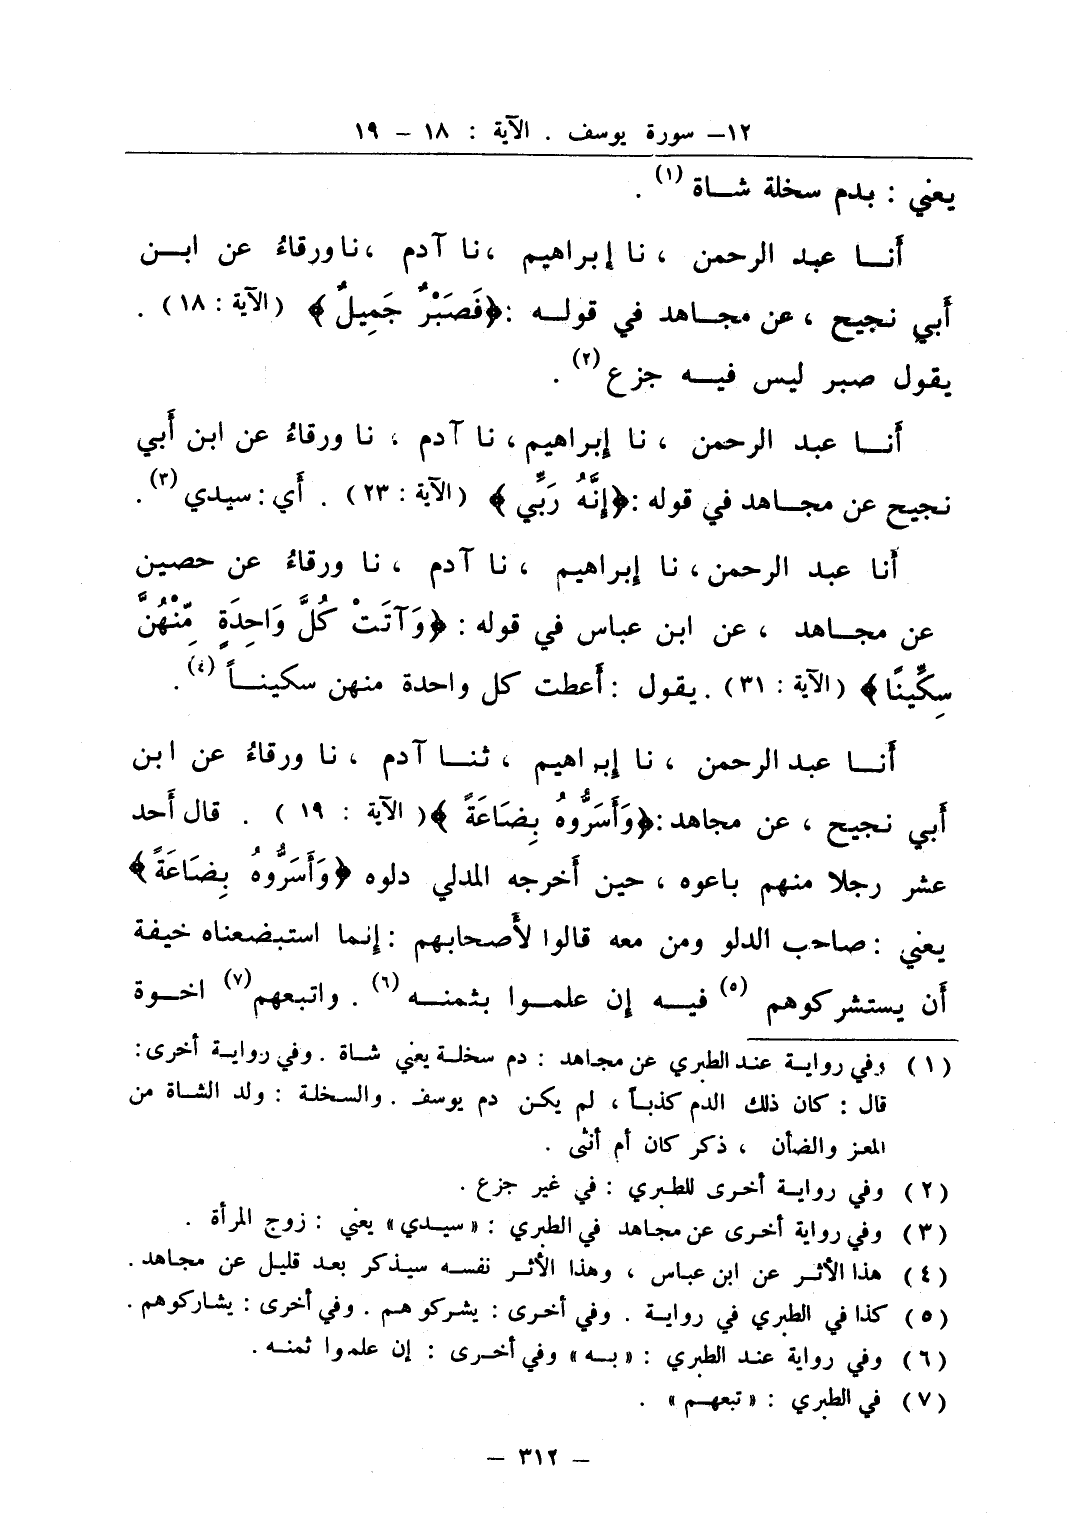 ١٢ـ سورة يوسف . الآية : ١٨ – ١٩
يعني : بدم سخلة شــاة (١) .
أَنــا عبد الرحمن ، نا إبراهيم ،نا آدم ،نا ورقاءُ عن ابــن
أَبي نجيح ، عن مجــاهد في قولــه :﴿فَصَبْرٌ جَمِيلٌ﴾ (الآية : ١٨) .
يقول صبر ليس فيــه جزع (٢) .
أَنــا عبد الرحمن ، نا إبراهيم ، نا آدم ، نا ورقاءُ عن ابن أَبي
نجيح عن مجــاهد في قوله :﴿إِنَّهُ رَبِّي﴾ (الآية : ٢٣) . أَي : سيدي (٣) .
أَنا عبد الرحمن ، نا إبراهيم ، نا آدم ، نا ورقاءُ عن حصين
عن مجــاهد ، عن ابن عباس في قوله : ﴿وَآتَتْ كُلَّ وَاحِدَةٍ مِّنْهُنَّ
سِكِّينًا﴾ (الآية : ٣١) . يقول : أَعطت كل واحدة منهن سكينــاً (٤) .
أَنــا عبد الرحمن ، نا إبراهيم ، ثنــا آدم ، نا ورقاءُ عن ابن
أَبي نجيح ، عن مجاهد :﴿وَأَسَرُّوهُ بِضَاعَةً﴾ ( الآية : ١٩ ) . قال أَحد
عشر رجلا منهم باعوه ، حين أَخرجه المدلي دلوه ﴿وَأَسَرُّوهُ بِضَاعَةً﴾
يعني : صاحب الدلو ومن معه قالوا لأَصحابهم : إنما استبضعناه خيفة
أَن يستشركوهم (٥) فيــه إن علمــوا بثمنــه (٦) . واتبعهم (٧) اخــوة
(١) وفي روايـة عنـد الطبري عن مجاهد : دم سخلـة يعني شاة . وفي روايـة أخرى :
قال : كان ذلك الدم كذبـاً ، لم يكـن دم يوسف . والسخلـة : ولد الشاة من
المعز والضأن ، ذكر كان أم أنثى .
(٢) وفي روايـة أخـرى للطبري : في غير جزع .
(٣) وفي رواية أخرى عن مجاهد في الطبري : «سيـدي» يعني : زوج المرأة .
(٤) هذا الأثـر عن ابن عباس ، وهذا الأثـر نفسـه سيـذكر بعـد قليـل عن مجاهد .
(٥) كذا في الطبري في روايـة . وفي أخرى : يشركوهم . وفي أخرى : يشاركوهم .
(٦) وفي رواية عنـد الطبري : «بـه» وفي أخـرى : إن علموا ثمنـه .
(٧) في الطبري : «تبعهـم» .
– ٣١٢ –